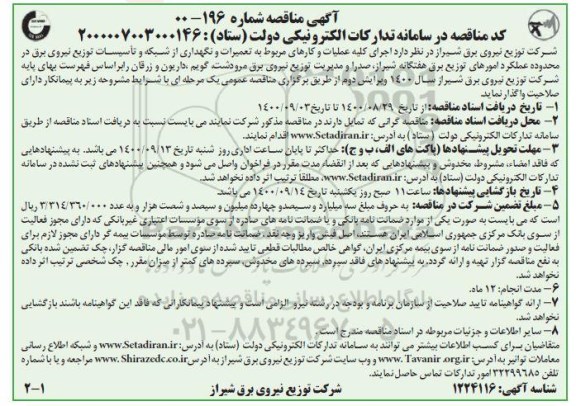 آگهی مناقصه شماره ۱۹۶-۰۰
کد مناقصه در سامانه تدارکات الکترونیکی دولت (ستاد): ۲۰۰۰۰۰۷۰۰۳۰۰۰۱۴۶
شرکت توزیع نیروی برق شیراز در نظر دارد اجرای کلیه عملیات و کارهای مربوط به تعمیرات و نگهداری از شبکه و تأسیسات توزیع نیروی برق در
محدوده عملکرد امورهای توزیع برق هفتگانه شیراز، صدرا و مدیریت توزیع نیروی برق مرودشت، گویم، داریون و زرقان را بر اساس فهرست بهای پایه
شرکت توزیع نیروی برق شیراز سال ۱۴۰۰ ویرایش دوم از طریق برگزاری مناقصه عمومی یک مرحله ای با شرایط مشروحه زیر به پیمانکار دارای
صلاحیت واگذار نماید
۱- تاریخ دریافت اسناد مناقصه: از تاریخ ۱۴۰۰/۰۸/۲۹ تا تاریخ ۱۴۰۰/۰۹/۰۳
۲- محل دریافت اسناد مناقصه: مناقصه گرانی که تمایل دارند در مناقصه مذکور شرکت نمایند می بایست نسبت به دریافت اسناد مناقصه از طریق
سامانه تدارکات الکترونیکی دولت (ستاد) به آدرس: www.Setadiran.ir اقدام نمایند.
۳- مهلت تحویل پیشنهادها (پاکت های الف، ب و ج): حداکثر تا پایان ساعت اداری روز شنبه تاریخ ۱۴۰۰/۰۹/۱۳ می باشد. به پیشنهادهایی
که فاقد امضاء، مشروط، مخدوش و پیشنهادهایی که بعد از انقضاء مدت مقرر در فراخوان واصل می شود و همچنین پیشنهادهای ثبت نشده در سامانه
تدارکات الکترونیکی دولت (ستاد) به آدرس: www.Setadiran.ir، مطلقا ترتیب اثر داده نخواهد شد.
۴- تاریخ بازگشایی پیشنهادها: ساعت ۱۱ صبح روز یکشنبه تاریخ ۱۴۰۰/۰۹/۱۴ می باشد.
۵- مبلغ تضمین شرکت در مناقصه: به حروف مبلغ سه میلیارد و سیصد و چهارده میلیون و سیصد و شصت هزار و به عدد ۳/۳۱۴/۳۶۰/۰۰۰ ریال
است که می بایست به صورت یکی از موارد ضمانت نامه بانکی و یا ضمانت نامه های صادره از سوی مؤسسات اعتباری غیربانکی که دارای مجوز فعالیت
از سوی بانک مرکزی جمهوری اسلامی ایران هستند، اصل فیش واریزی وجه نقد، ضمانت نامه صادره توسط مؤسسات بیمه گر دارای مجوز لازم برای
فعالیت و صدور ضمانت نامه از سوی بیمه مرکزی ایران، گواهی خالص مطالبات قطعی تایید شده از سوی امور مالی مناقصه گزار، چک تضمین شده بانکی
به نفع مناقصه گزار تهیه و ارائه گردد. به پیشنهاد های فاقد سپرده، سپرده های مخدوش، سپرده های کمتر از میزان مقرر، چک شخصی ترتیب اثر داده
نخواهد شد.
۶- مدت انجام: ۱۲ ماه.
۷- ارائه گواهینامه تایید صلاحیت از سازمان برنامه و بودجه در رشته نیرو الزامی است و پیشنهاد پیمانکارانی که فاقد این گواهینامه باشند بازگشایی
نخواهد شد.
۸- سایر اطلاعات و جزئیات مربوطه در اسناد مناقصه مندرج است.
متقاضیان برای کسب اطلاعات بیشتر می توانند به سامانه تدارکات الکترونیکی دولت (ستاد) به آدرس: www.Setadiran.ir و شبکه اطلاع رسانی
معاملات توانیر به آدرس: www.Tavanir.org.ir و وب سایت شرکت توزیع نیروی برق شیراز به آدرس www.Shirazedc.co.ir مراجعه و یا با شماره
تلفن ۳۲۲۹۹۶۸۵ امور تدارکات تماس حاصل نمایند.
شناسه آگهی: ۱۲۲۴۱۱۶
شرکت توزیع نیروی برق شیراز
۲-۱
پایگاه اطلاع رسانی مناقصه و مزایده
۰۲۱-۸۸۳۴۹۶۷۰